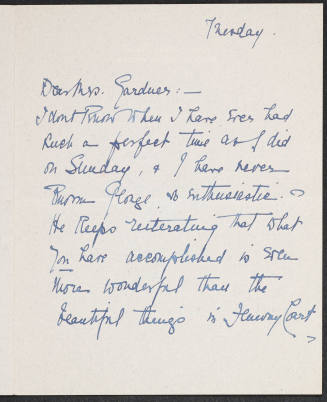 Tuesday.
Dear Mrs. Gardner: —
I dont know when I have ever had
such a perfect time as I did
on Sunday, & I have never
known George so enthusiastic.
He keeps reiterating that what
you have accomplished is even
more wonderful than the
beautiful things in Fenway Court